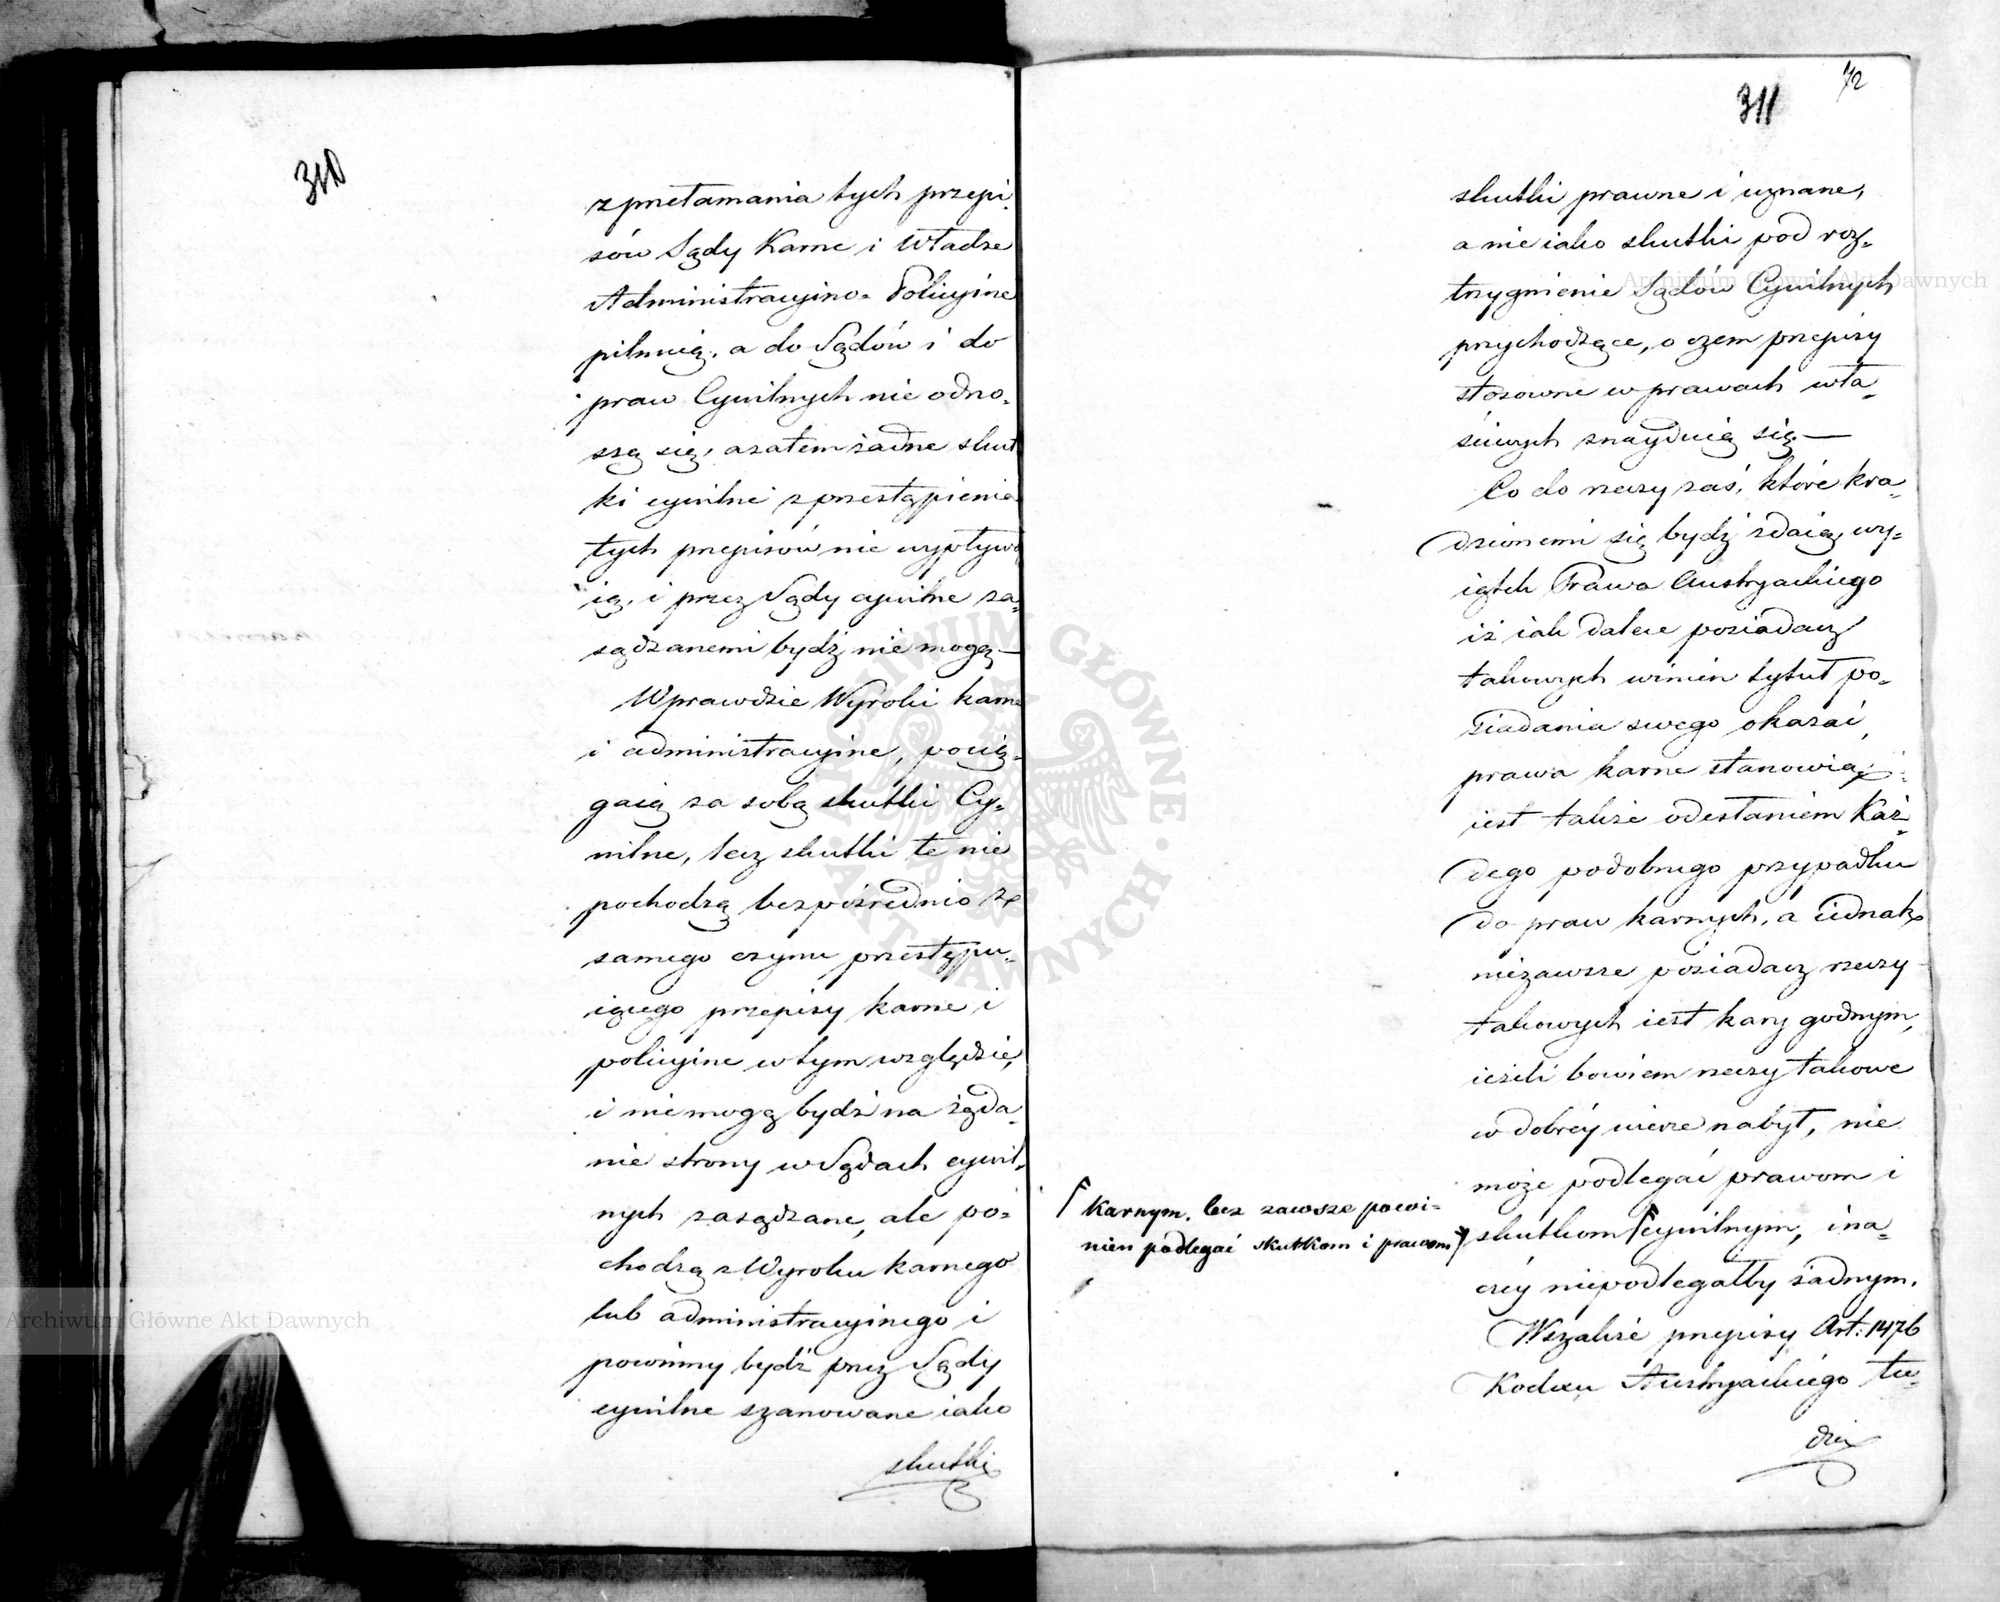 310
z przełamania tych przepi-
sów Sądy Karne i Władze
Administracyino-Policyine
pilnuią, a do Sądów i do
praw Cywilnych nie odno-
szą się, azatem żadne skut
ki cywilne z przestąpienia
tych przepisów nie wypływa
ią, i przez Sądy cywilne za-
sądzanemi bydź nie mogą —
Wprawdzie Wyroki karne
i administracyine, pocią-
gaią za sobą skutki Cy-
wilne, lecz skutki te nie
pochodzą bezpośrednio ze
samego czynu przestępu-
iącego przepisy karne i
policyine w tym względzie,
i nie mogą bydź na żąda-
nie strony w Sądach cywil-
nych zasądzane, ale po-
chodzą z Wyroku karnego
lub administracyinego i
powinny bydź przez Sądy
cywilne szanowane iako
skutki
72
311
skutki prawne i uznane,
a nie iako skutki pod roz-
trzygnienie Sądów Cywilnych
przychodzące, o czem przepisy
stosowne w prawach wła-
ściwych znayduią się —
Co do rzeczy zaś, które kra-
dzionemi się bydź zdaią, wy-
iątek Prawa Austryackiego
iż iak dalece posiadacz
takowych winien tytuł po-
siadania swego okazać,
prawa karne stanowią,
iest także odesłaniem Każ-
dego podobnego przypadku
do praw karnych, a iednak
niezawsze posiadacz rzeczy
takowych iest kary godnym,
ieżeli bowiem rzeczy takowe
w dobréy wierze nabył, nie
może podlegać prawom i
skutkom cywilnym, ina-
czéy niepodlegałby żadnym.
Karnym, lecz zawsze powi-
nien podlegać skutkom i prawom
Wszakże przepisy Art: 1476
Kodexu Austryackiego tu-
dzież
Archiwum Główne Akt Dawnych
Archiwum Główne Akt Dawnych
ARCHIWUM GŁÓWNE AKT DAWNYCH